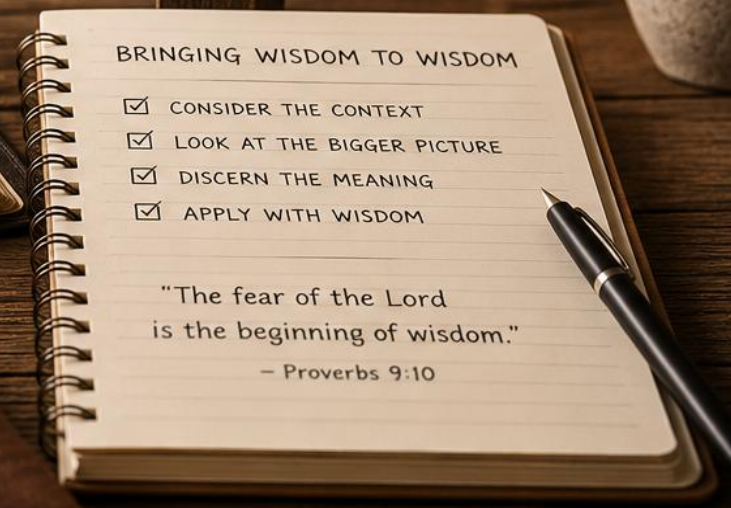 BRINGING WISDOM TO WISDOM
☑ CONSIDER THE CONTEXT
☑ LOOK AT THE BIGGER PICTURE
☑ DISCERN THE MEANING
☑ APPLY WITH WISDOM
"The fear of the Lord
is the beginning of wisdom."
– Proverbs 9:10